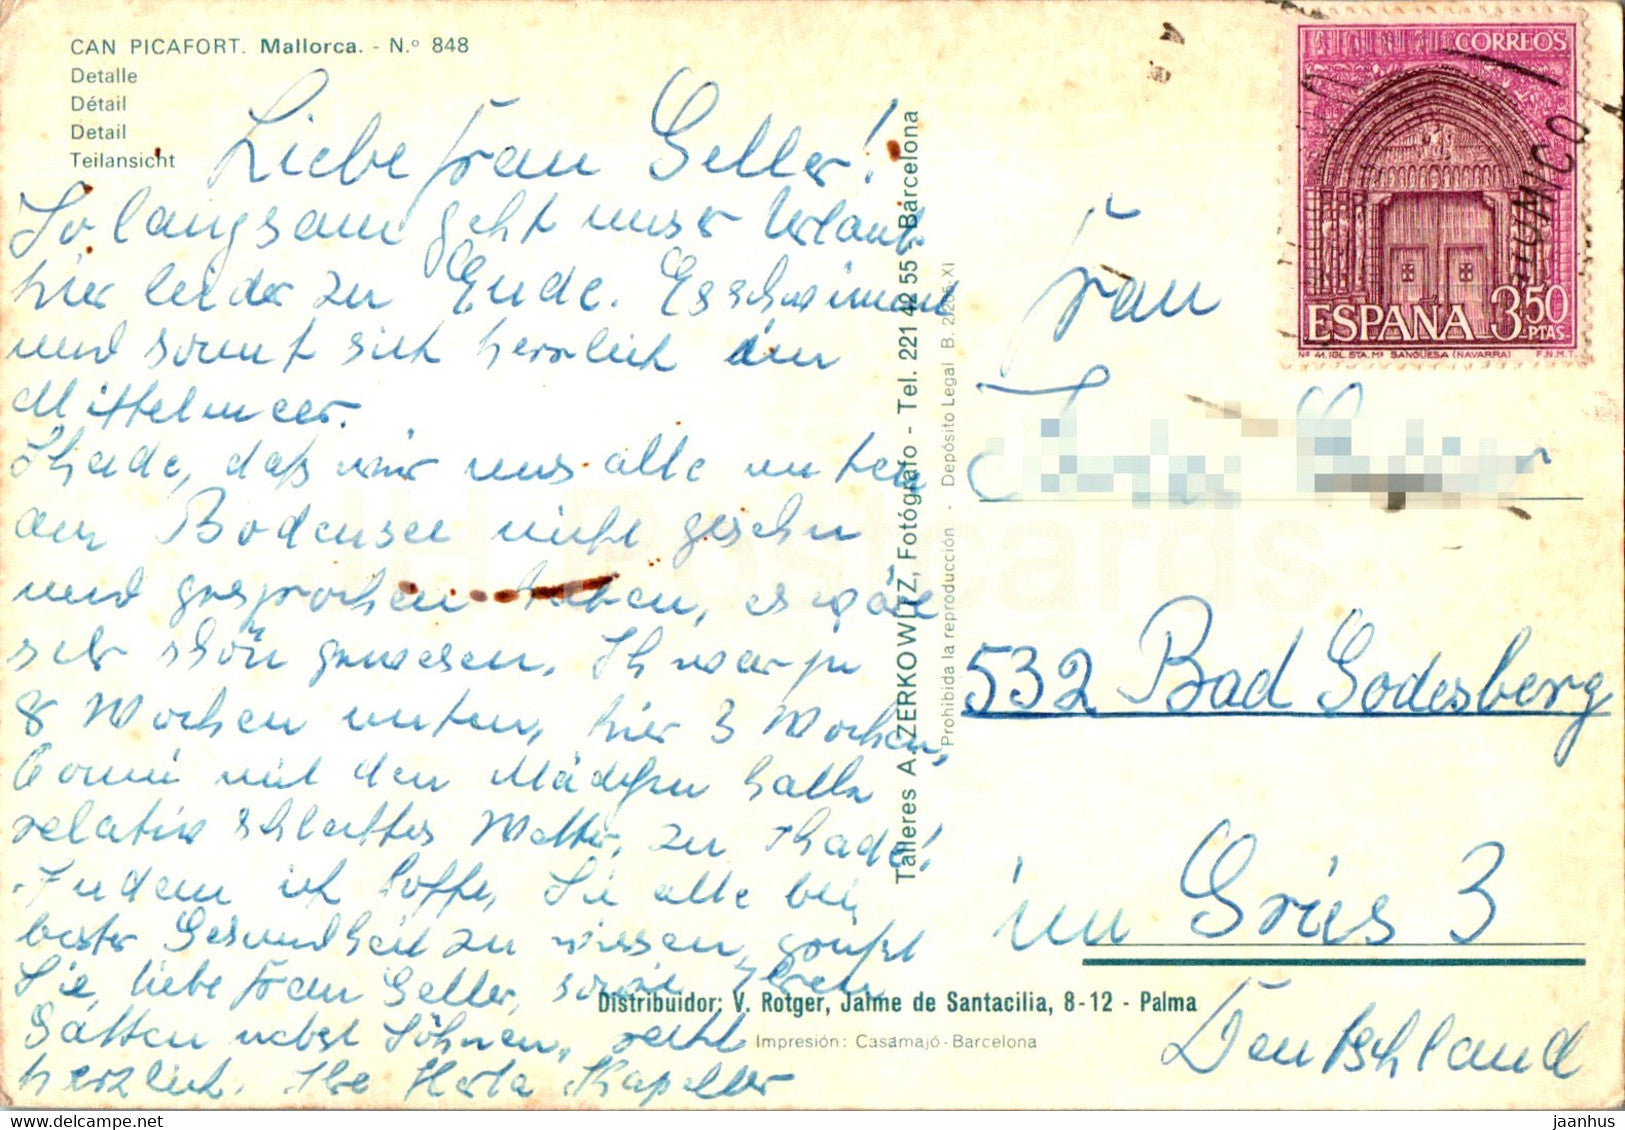 CAN PICAFORT. Mallorca. - N.º 848
Detalle
Détail
Detail
Teilansicht
Liebe Frau Geller!
So langsam geht unser Urlaub
hier leider zu Ende. Es schwimmt
und sonnt sich herrlich am
Mittelmeer.
Schade, daß wir uns alle unten
am Bodensee nicht gesehn
und gesprochen haben, es wäre
sehr schön gewesen. Ich war ja
8 Wochen unten, hier 3 Wochen,
Conni mit den Mädchen hatte
relativ schlechtes Wetter, zu schade!
Indem ich hoffe, Sie alle bei
bester Gesundheit zu wissen, grüßt
Sie, liebe Frau Geller, sowie Ihren
Gatten nebst Söhnen, recht
herzlich. Ihre Herta Kapeller
Talleres A. ZERKOWITZ, Fotógrafo - Tel. 221 42 55 - Barcelona
Prohibida la reproducción - Depósito Legal B. XI
Distribuidor: V. Rotger, Jaime de Santacilia, 8-12 - Palma
Impresión: Casamajó - Barcelona
CORREOS
ESPAÑA 3,50 PTAS
Nº 41. IGL. STA. Mª SANGÜESA (NAVARRA) F.N.M.T.
Frau
532 Bad Godesberg
im Gries 3
Deutschland
IH Postcards
jaanhus